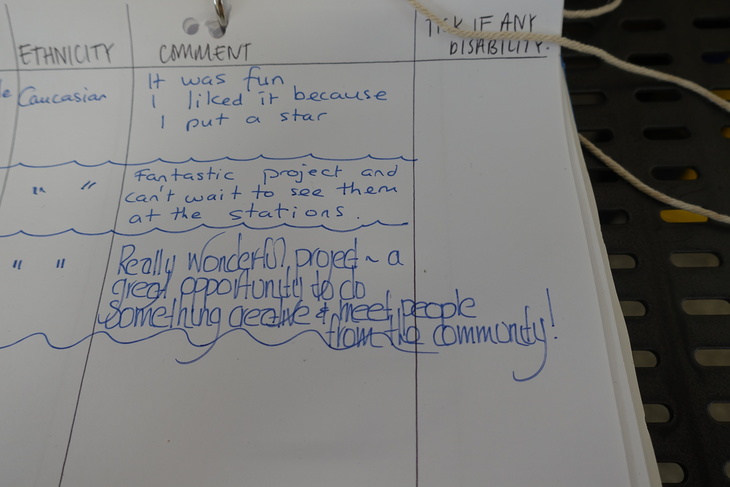 ETHNICITY COMMENT TICK IF ANY
DISABILITY.
Caucasian It was fun
I liked it because
I put a star
" " Fantastic project and
can't wait to see them
at the stations.
" " Really wonderful project ~ a
great opportunity to do
something creative & meet people
from the community!